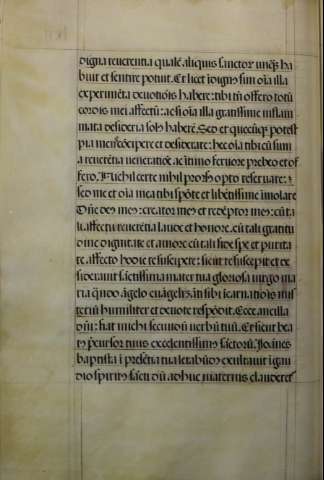 digna reuerentia qualē aliquis sanctor̄ unq̄ȝ ha
buit et sentire potuit. Et licet īdign9 sim oīa illa
experimēta deuotiōis habere: tibi tn̄ offero totū
cordis mei affectū: ac si oīa illa gratissime inflam
mata desideria sol9 haberē. Sed et quecūqȝ potest
pia mens cōcipere et desiderare: hec oīa tibi cū sum
a reuerētia ueneratiōe ac ītimo feruore prebeo et of
fero. Nichil certe mihi propr̄io opto reseruare: s
sed me et oīa mea tibi spōte et libētissime īmolare
Dn̄e de9 me9: creator me9 et redēptor me9: cū ta
li affectu reuerētia laude et honore. cū tali gratitu
dine dignitate et amore cū tali fide spe et purita
te affecto hodie te suscipere: sicut te suscepit et de
siderauit sāctissima mater tua gloriosa uirgo ma
ria qn̄do āgelo euāgelizāti sibi īcarnatiōis mis
teriū humiliter et deuote respōdit. Ecce ancilla
dn̄i: fiat michi secundū uerbū tuū. Et sicut bea
t9 precursor tuus excellentissim9 sāctorū. Joānes
baptista ī presētia tua letabūd9 exultauit ī gau
dio spirit9 sācti dū adhuc maternis clauderet